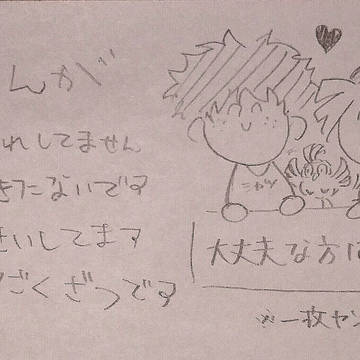 んが
れしてません
きたないです
せいしてます
ごくざつです
大丈夫な方は
※一枚ヤン